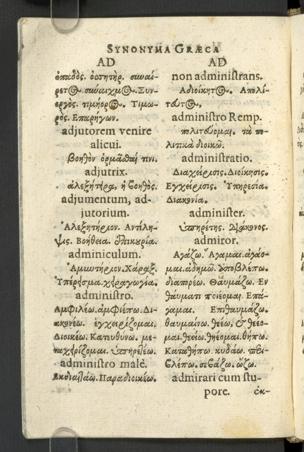 SYNONYMA GRÆCA
AD
ὀπαδὸς. ὀοτητὴρ. συναί-
ρετος. συναιχμος. Συν-
εργὸς. τιμήορος. Τιμω-
ρὸς. Επαρήγων.
adjutorem venire
alicui.
βοηθὸν ὁρμᾶσθαί τινι.
adjutrix.
ἀλεξήτειρα, ἡ βοηθὸς.
adjumentum, ad-
jutorium.
Ἀλεξητήριον. Αντίλη-
ψις. Βοήθεια. ἐπικουρία.
adminiculum.
Αμυντήριον. Χάραξ.
Υπέρεισμα. χειραγωγία.
administro.
Αμφιπολέω. ἀμφιέπω. Δι-
ακονέω. ἐγχειρίζομαι.
Διοικέω. Κατευθύνω. με-
ταχειρίζομαι. ὑπηρετέω.
administro malè.
Εκδιαιτάω. Παραδιοικέω.
AD
non administrans.
Αδιοίκητος. Απολί-
τευτος.
administro Remp.
πολιτεύομαι. τὰ πο-
λιτικὰ διοικῶ.
administratio.
Διαχείρισις. Διοίκησις.
Εγχείρισις. Υπηρεσία.
Διακονία.
administer.
ὑπηρέτης. Διάκονος.
admiror.
Αγάζω. Αγαμαι. ἀγάο-
μαι. Υποβλέπω.
Θαυμάζω. Εν
θαύματι ποιέομαι. Επά-
γαμαι. Επιθαυμάζω.
θαυμαίνω.
Καταθήπω. κυδάω. περι-
βλέπω. σεβάζω.
admirari cum stu-
pore. ἐκ-